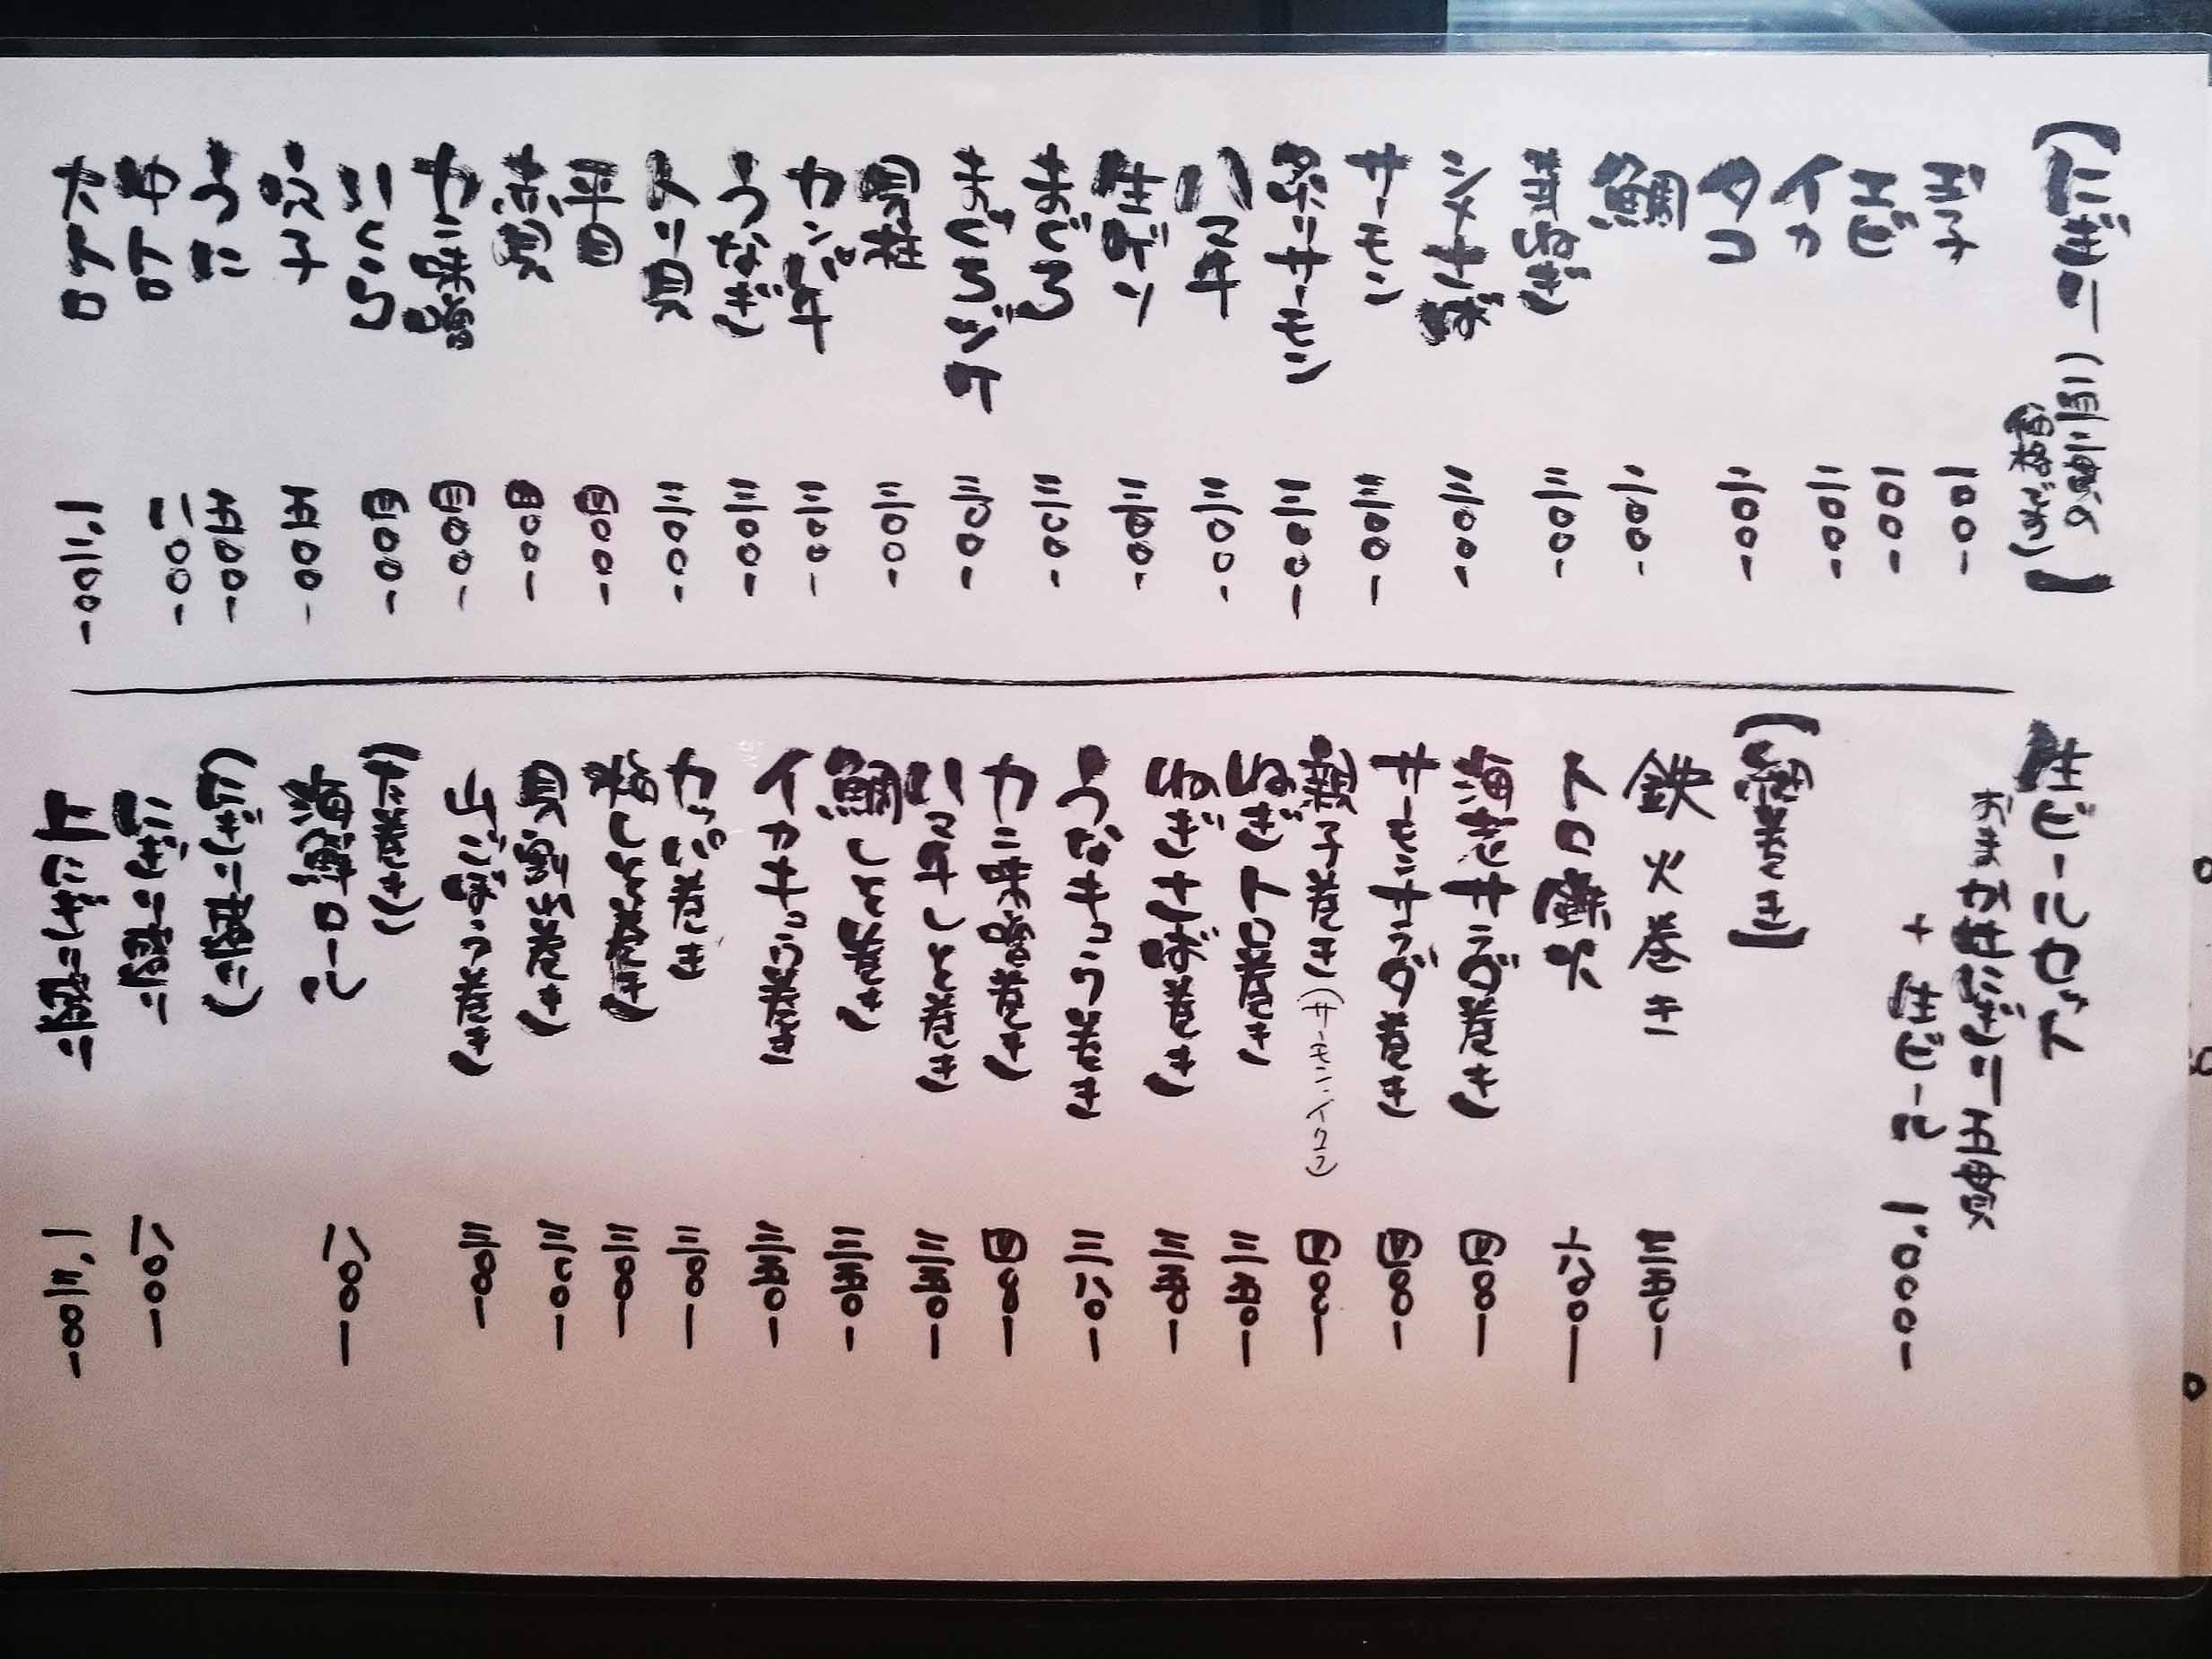 【にぎり
玉子 一〇〇-
エビ 一〇〇-
イカ 二〇〇-
タコ 二〇〇-
鯛 二〇〇-
芽ねぎ
シメサバ
サーモン 三〇〇-
炙りサーモン 三〇〇-
ハマチ 三〇〇-
生ゲソ 三〇〇-
まぐろ 三〇〇-
まぐろヅケ 三〇〇-
貝柱 三〇〇-
カンパチ 三〇〇-
うなぎ 三〇〇-
トリ貝 三〇〇-
平目 四〇〇-
赤貝 四〇〇-
カニ味噌 四〇〇-
いくら 四〇〇-
穴子 五〇〇-
うに 五〇〇-
中トロ
大トロ
生ビールセット
おまかせにぎり五貫
+生ビール 一,〇〇〇-
【細巻き】
鉄火巻き 三五〇-
トロ鉄火 六〇〇-
海老サラダ巻き 四〇〇-
サーモンサラダ巻き 四〇〇-
親子巻き(サーモン・イクラ) 四〇〇-
ねぎトロ巻き 三五〇-
ねぎサバ巻き 三五〇-
うなキュウ巻き 三八〇-
カニ味噌巻き 四〇〇-
ハマチしそ巻き 三五〇-
鯛しそ巻き 三五〇-
イカキュウ巻き 三五〇-
カッパ巻き 三〇〇-
梅しそ巻き 三〇〇-
貝割巻き 三〇〇-
山ごぼう巻き 三〇〇-
(太巻き)
海鮮ロール 八〇〇-
(にぎり一人前)
にぎり一人前 八〇〇-
上にぎり一人前 一,三〇〇-